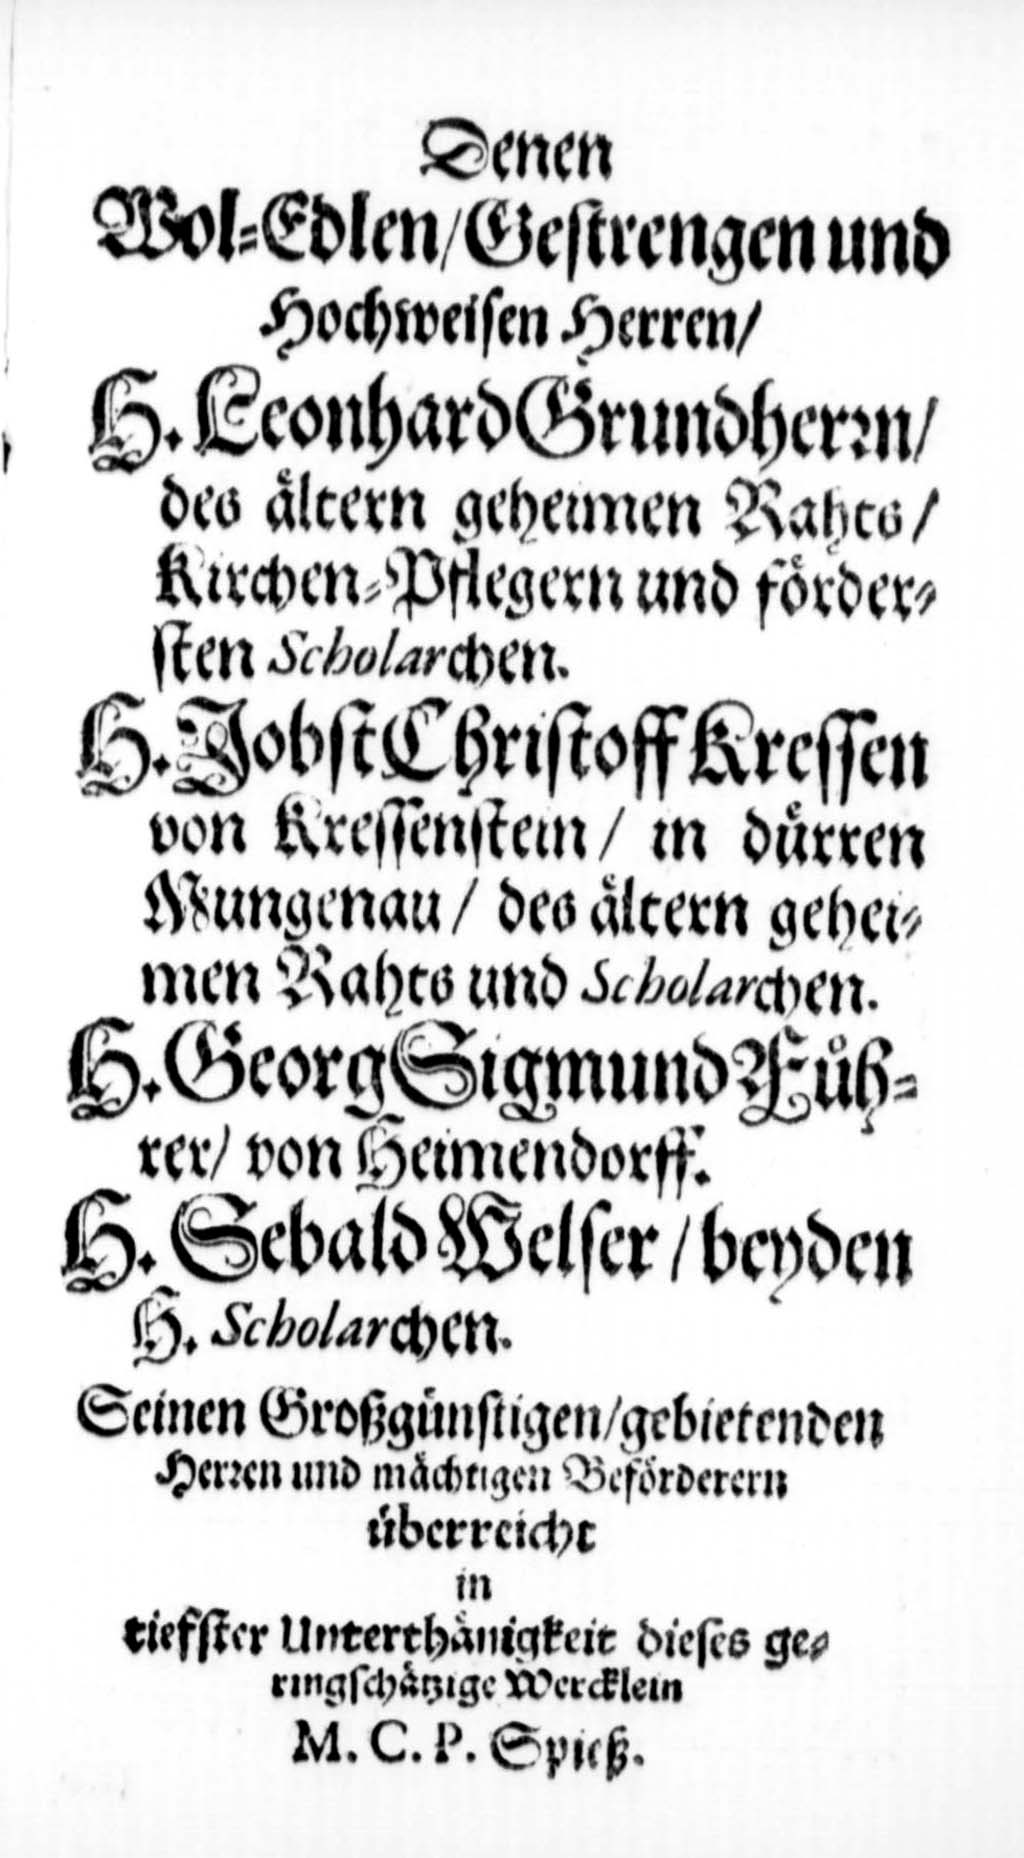 Denen
Wol-Edlen/Gestrengen und
Hochweisen Herren/
H. Leonhard Grundherrn/
des ältern geheimen Rahts/
Kirchen-Pflegern und förder-
sten Scholarchen.
H. Jobst Christoff Kressen
von Kressenstein/ in dürren
Mungenau/ des ältern gehei-
men Rahts und Scholarchen.
H. Georg Sigmund Füh-
rer/ von Heimendorff.
H. Sebald Welser/beyden
H. Scholarchen.
Seinen Großgünstigen/gebietenden
Herren und mächtigen Beförderern
überreicht
in
tiefster Unterthänigkeit dieses ge-
ringschätzige Wercklein
M. C. P. Spieß.